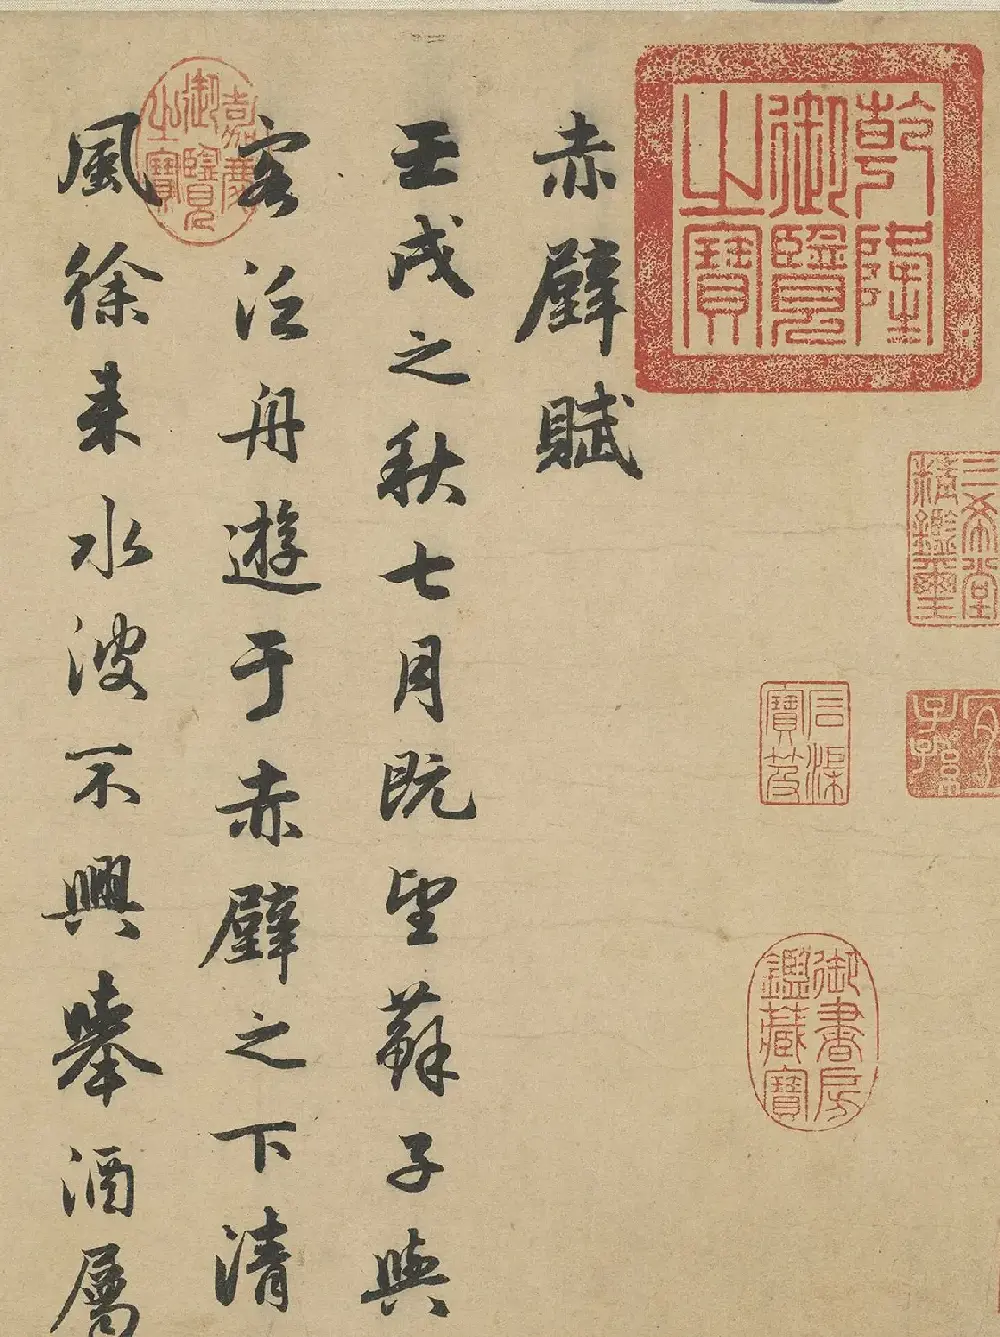 乾隆御覽之寶
三希堂精鑑璽
宜子孫
石渠寶笈
御書房鑑藏寶
赤壁賦
壬戌之秋七月既望蘇子與
客泛舟遊于赤壁之下清
風徐来水波不興舉酒屬
嘉慶御覽之寶